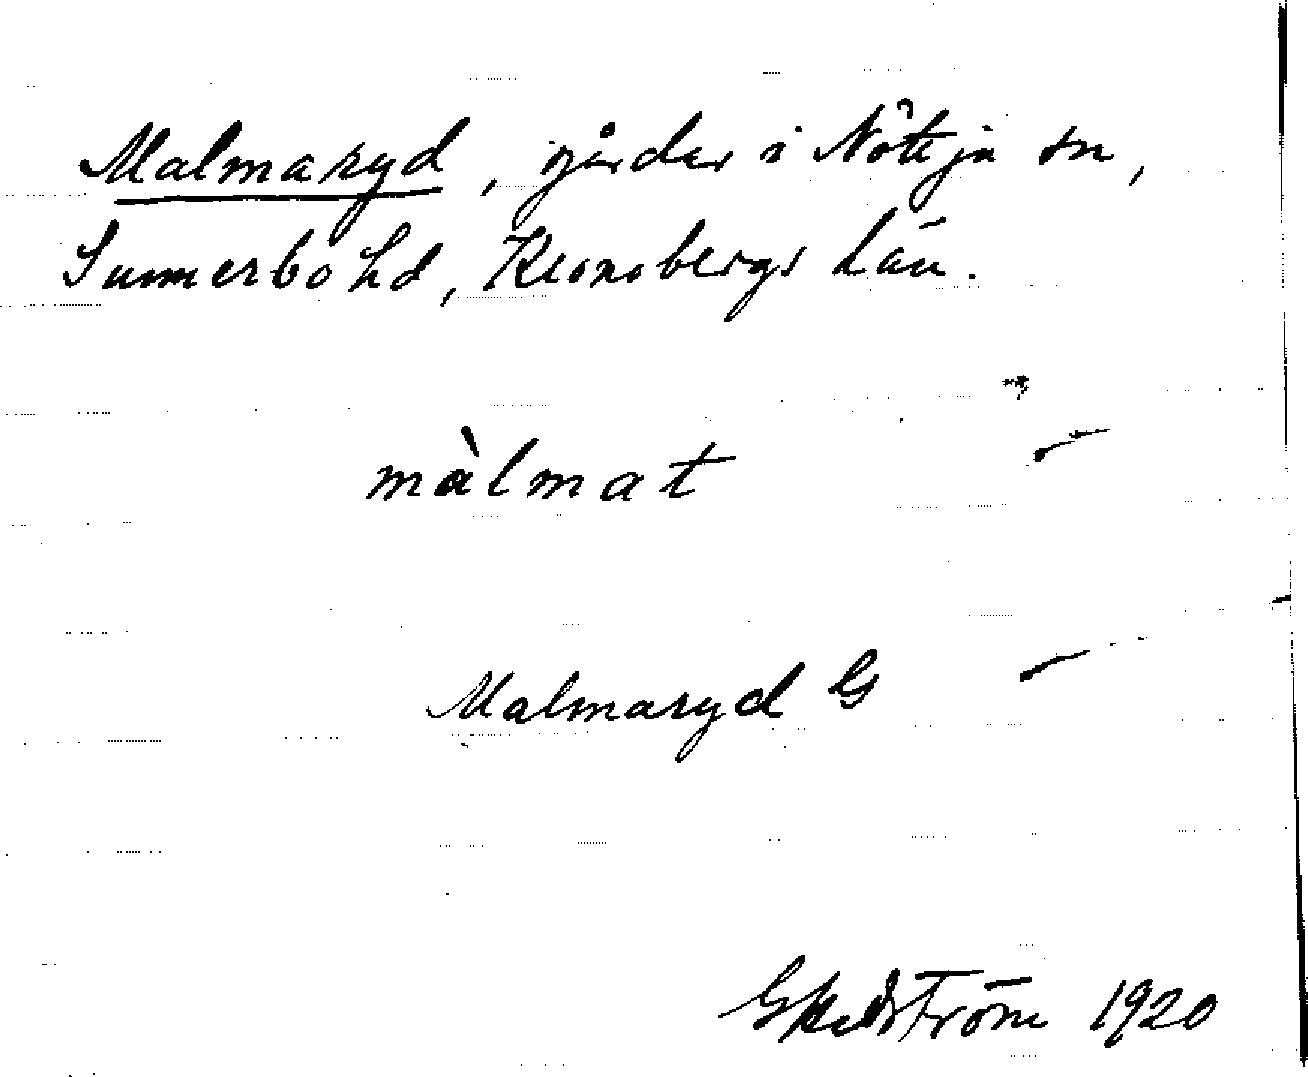 Malmaryd, gårdar i Nöttja sn,
Sunnerbo hd, Kronobergs Län.
màlmat
Malmaryd G
1920